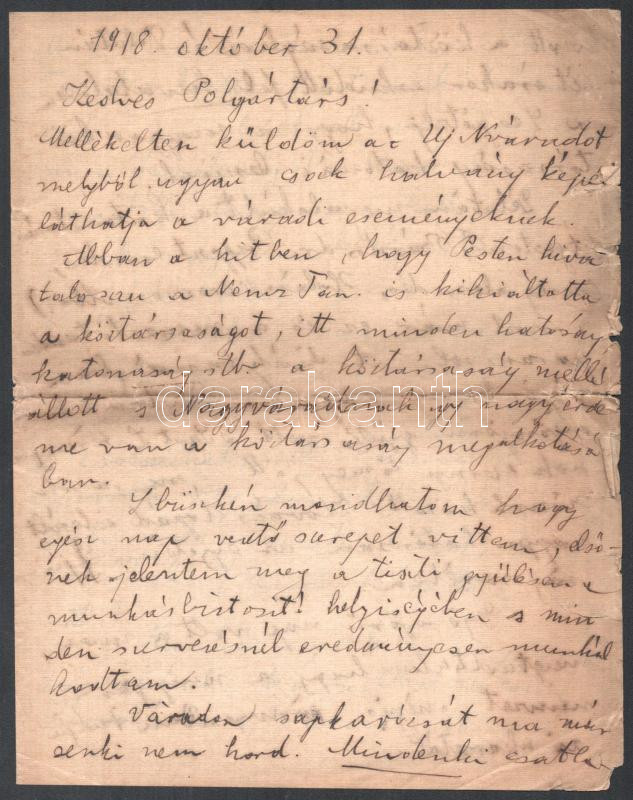 1918. október 31.
Kedves Polgártárs!
Mellékelten küldöm az Uj Nváradot
melyből ugyan csak halvány képé
láthatja a váradi eseményeknek.
Abban a hitben, hogy Pesten hiva
talosan a Nemz Tan. is kikiáltotta
a köztársaságot, itt minden hatóság
katonaság stb. a köztársaság mellé
állott s Nagyváradnak így nagy érde
me van a köztársaság megalkotásá
ban.
S büszkén mondhatom hogy
egész nap vezető szerepet vittem, első-
nek jelentem meg a tiszti gyülésen a
munkásbiztosító helyiségében s min
den szervezésnél eredményesen munkál
kodtam.
Váradon sapkarózsát ma már
senki nem hord. Mindenki csatla
darabanth